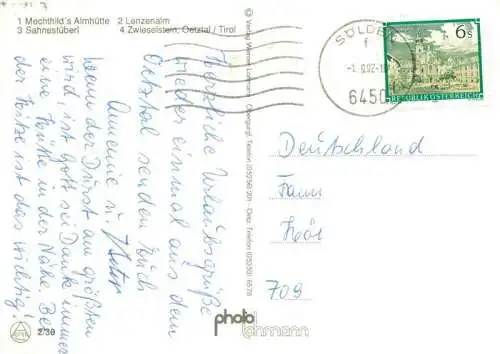 1 Mechthild's Almhütte 2 Lenzenalm
3 Sahnestüberl 4 Zwieselstein, Oetztal / Tirol
Herzliche Urlaubsgrüße
wieder einmal aus dem
Oetztal senden Euch
Annemie u.
Wenn der Durst am größten
wird, ist Gott sei Dank immer
eine Hütte in der Nähe. Bei
der Hitze ist das wichtig!
© Verlag Lohmann, Obergurgl, Telefon (05256) Oetz, Telefon (05252) 6578
SÖLDEN
6450
6 S
REPUBLIK ÖSTERREICH
Deutschland
Fam.
709
photo
lohmann
2/30